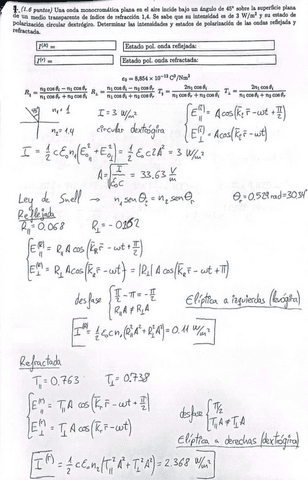 1. (1.6 puntos) Una onda monocromática plana en el aire incide bajo un ángulo de 45º sobre la superficie plana
de un medio transparente de índice de refracción 1,4. Se sabe que su intensidad es de 3 W/m² y su estado de
polarización circular dextrógiro. Determinar las intensidades y estados de polarización de las ondas reflejada y
refractada.
I⁽ᴿ⁾ = Estado pol. onda reflejada:
I⁽ᵀ⁾ = Estado pol. onda refractada:
ε₀ = 8,854 × 10⁻¹² C²/Nm²
45º n₁ = 1 I = 3 W/m²
n₂ = 1.4 circular dextrógira
E∥⁽ᴵ⁾ = A cos(k̄ᵢ r̄ - ωt + π/2)
E⊥⁽ᴵ⁾ = A cos(k̄ᵢ r̄ - ωt)
I = 1/2 c ε₀ n₁ (E²₀₁ + E²₀₂) = 1/2 c ε₀ 2A² = 3 W/m²
A = √(I/ε₀c) = 33.63 V/m
Ley de Snell → n₁ sen θᵢ = n₂ sen θᵣ θᵣ = 0.529 rad = 30.34º
Reflejada
R∥ = 0.068 R⊥ = -0.262
E∥⁽ᴿ⁾ = R∥ A cos(k̄ᵣ r̄ - ωt + π/2)
E⊥⁽ᴿ⁾ = R⊥ A cos(k̄ᵣ r̄ - ωt) = |R⊥| A cos(k̄ᵣ r̄ - ωt + π)
desfase { π/2 - π = -π/2
R∥A ≠ R⊥A Elíptica a izquierdas (levógira)
I⁽ᴿ⁾ = 1/2 ε₀ c n₁ (R∥²A² + R⊥²A²) = 0.11 W/m²
Refractada
T∥ = 0.763 T⊥ = 0.738
E∥⁽ᵀ⁾ = T∥ A cos(k̄ₜ r̄ - ωt + π/2)
E⊥⁽ᵀ⁾ = T⊥ A cos(k̄ₜ r̄ - ωt)
desfase { π/2
T∥A ≠ T⊥A
Elíptica a derechas (dextrógira)
I⁽ᵀ⁾ = 1/2 c ε₀ n₂ (T∥²A² + T⊥²A²) = 2.368 W/m²